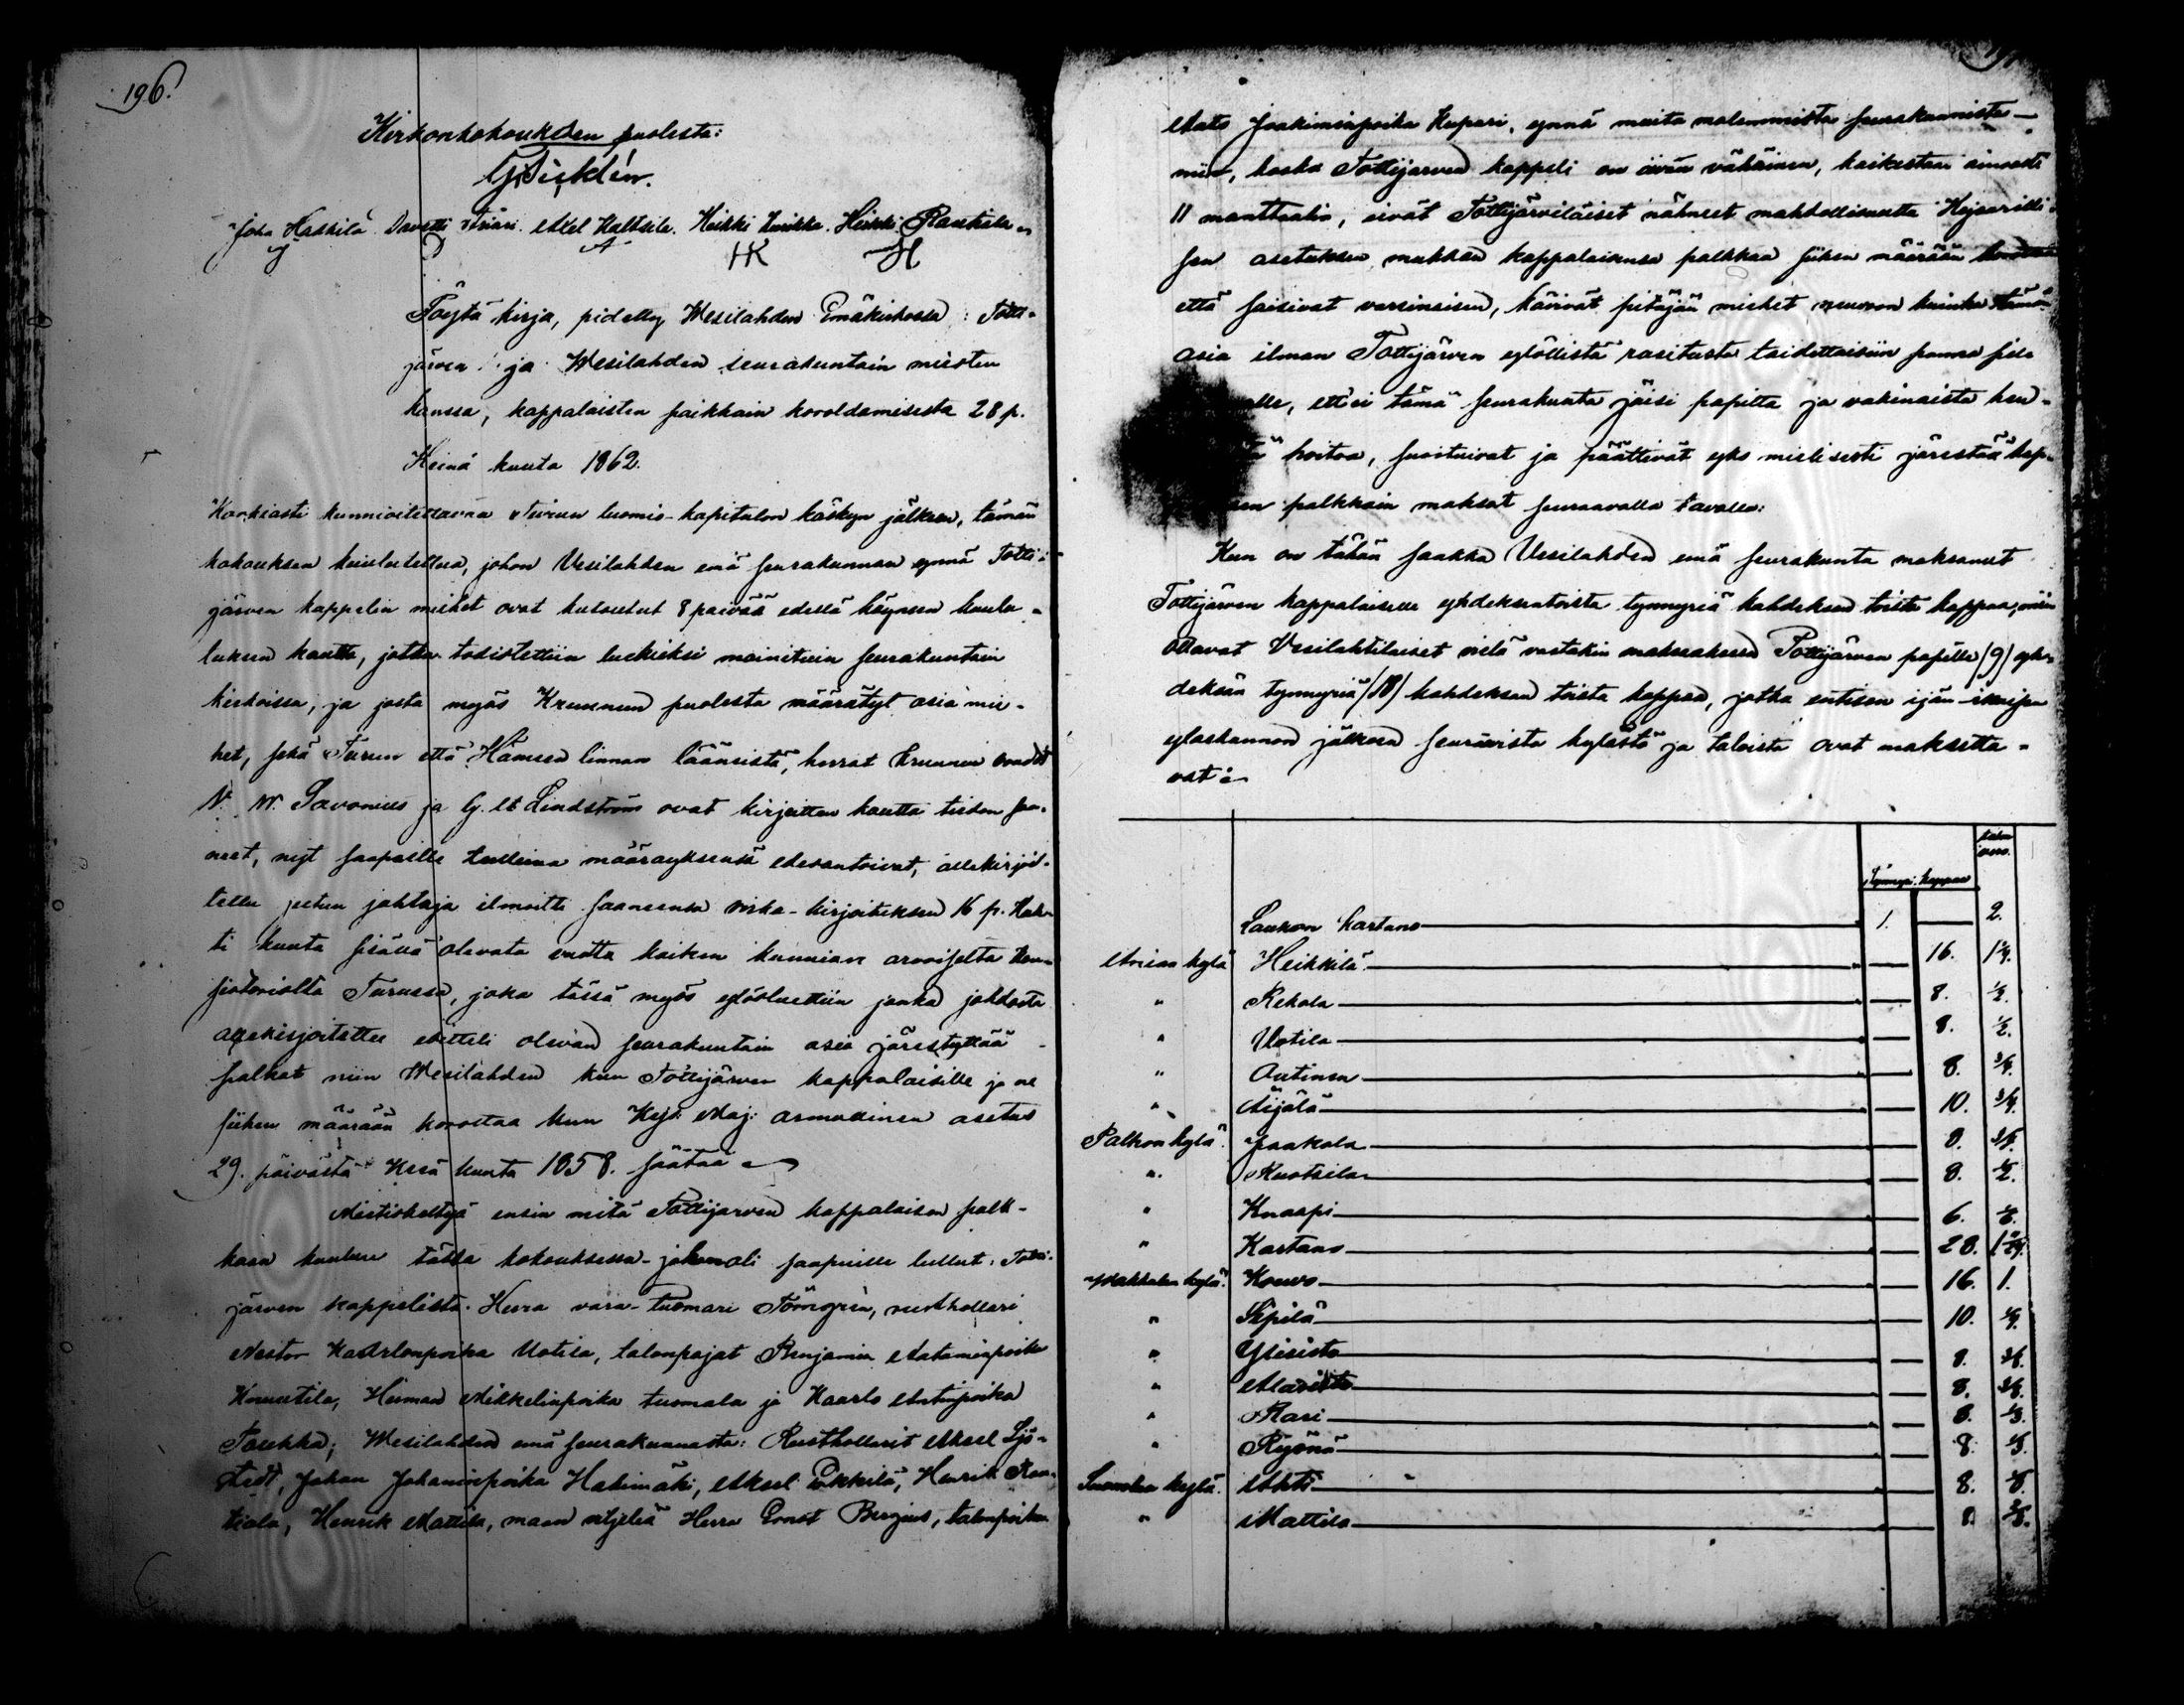 196.
Kirkonkokouksen puolesta:
Juha Haskilä Davetti Anian. Axel Haltsila. Heikki Kurikka. Heikki Rautiala
J D A HK H
Pöytä kirja, pidetty Wesilahden Emäkirkossa Totti-
järven ja Wesilahden seurakuntain miesten
kanssa, kappalaisten paikkain koroldamisesta 28 p.
Heinä kuuta 1862.
Korkiasti kunnioitettavan Turun tuomio-kapitulon käskyn jälkeen, tämän
kokouksen kuulutettua, johon Vesilahden emä seurakunnan ynnä Totti-
järven kappelin miehet ovat kutsutut 8 päivää edellä käyneen kuulu-
tuksen kautta, jotka todistettiin luetuiksi mainituin seurakuntain
kirkoissa, ja josta myös Kruunun puolesta määrätyt asia mie-
het, sekä Turun että Hämeen linnan läänistä, herrat Kruunun voudit
N. W. Savonius ja G. A. Lindström ovat kirjeitten kautta tiedon saa-
neet, nyt saapuille tulleina määräyksensä edesantoivat, allekirjoi-
tettu joukon johtaja ilmoitti saaneensa virka-kirjoituksen 16 p. Huh-
ti kuuta sisällä olevata vuotta kaiken kunnian arvoiselta Kon-
sistoriolta Turussa, joka tässä myös ylösluettiin jonka johdosta
allekirjoitettu esitteli olevan seurakuntain asia järestyttää
palkat niin Wesilahden kun Tottijärven kappalaisille ja ne
siihen määrään korottaa kun Keis: Maj: armollinen asetus
29. päivästä Kesä kuuta 1858. säätää
Mietiskeltyä ensin mitä Tottijärven kappalaisen palk-
kaan kuuluu tässä kokouksessa johon oli saapuille tullut: Totti-
järven kappelista: Herra vara-tuomari Törngren, rusthollari
Nestor Kaarlonpoika Uotila, talonpojat Benjamin Aataminpoika
Knuutila, Herman Mikkelinpoika tuomala ja Kaarlo Antinpoika
Wesilahden emä seurakunnasta: Rusthollarit Aksel Sjö-
stedt, Johan Johaninpoika Hakimäki, Aksel Erkkilä, Henrik Rau-
tiala, Henrik Mattila, maan viljeliä Herra Ernst Bergius, talonpoika
Mats Joakiminpoika Kupari, ynnä muita molemmista seurakunnista
niin, koska Tottijärven kappeli on aivan vähäinen, kaikestaan ainoasti
11 manttaalia, eivät Tottijärviläiset nähneet mahdollisuutta Keisarilli-
sen asetuksen mukkan kappalaisensa palkkaa siihen määrään
että saisivat varsinaisen, kävivät pitäjän miehet neuvoon kuinka tämä
asia ilman Tottijärven ylöllistä rasitusta taidettaisiin panna sille
alle, ett'ei tämä seurakunta jäisi papitta ja vakinaista hen-
tä hoitoa, suostuivat ja päättivät yks mielisesti järestää kap-
sen palkkain maksut seuraavalla tavalla:
Kun on tähän saakka Vesilahden emä seurakunta maksanut
Tottijärven kappalaiselle yhdeksäntoista tynnyriä kahdeksan toista kappaa, niin
ottavat Vesilahtilaiset vielä vastakin maksaaksensa Tottijärven papille (9) yh-
deksän tynnyriä (18) kahdeksan toista kappaa, jotka entisen ijän-ikuisen
ylöskannon jälkeen seuraavista kylästä ja taloista ovat maksetta-
vat:
Tynnyri. Kappaa
Laukon kartano 1. — 2.
Anian kylä Heikkilä — 16. 1 1/4.
" Rekola — 8. 1/2.
" Uotila — 8. 1/2.
" Autinen — 8. 3/4.
" Äijälä — 10. 3/4.
Palhon kylä Jaakola — 8. 3/8.
" Kuotsila — 8. 1/2.
" Knaapi — 6.
" Kartano — 28.
Wakkalan kylä. Kouvo — 16. 1.
" Sipilä — 10.
" Ylisisto — 8. 3/8.
" Alasisto — 8. 3/8.
" Rasi — 8. 1/3.
" Ryönä — 8. 1/3.
Suomelan kylä. Ahti — 8.
" Mattila — 8. 3/8.